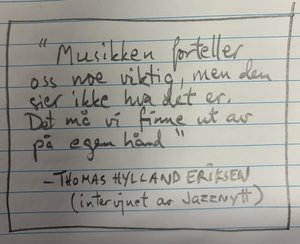 "Musikken forteller
oss noe viktig, men den
sier ikke hva det er.
Det må vi finne ut av
på egen hånd"
- THOMAS HYLLAND ERIKSEN
(intervjuet av Jazznytt)